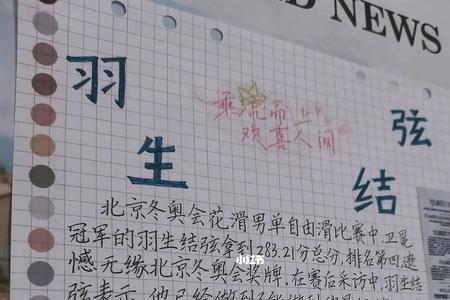 NEWS
羽生
弦结
乘流而上
欢喜人间
北京冬奥会花滑男单自由滑比赛中,卫冕
冠军的羽生结弦拿到283.21分总分,排名第四,遗
憾无缘北京冬奥会奖牌。在赛后采访中,羽生结
弦表示,他已经做到
小红书